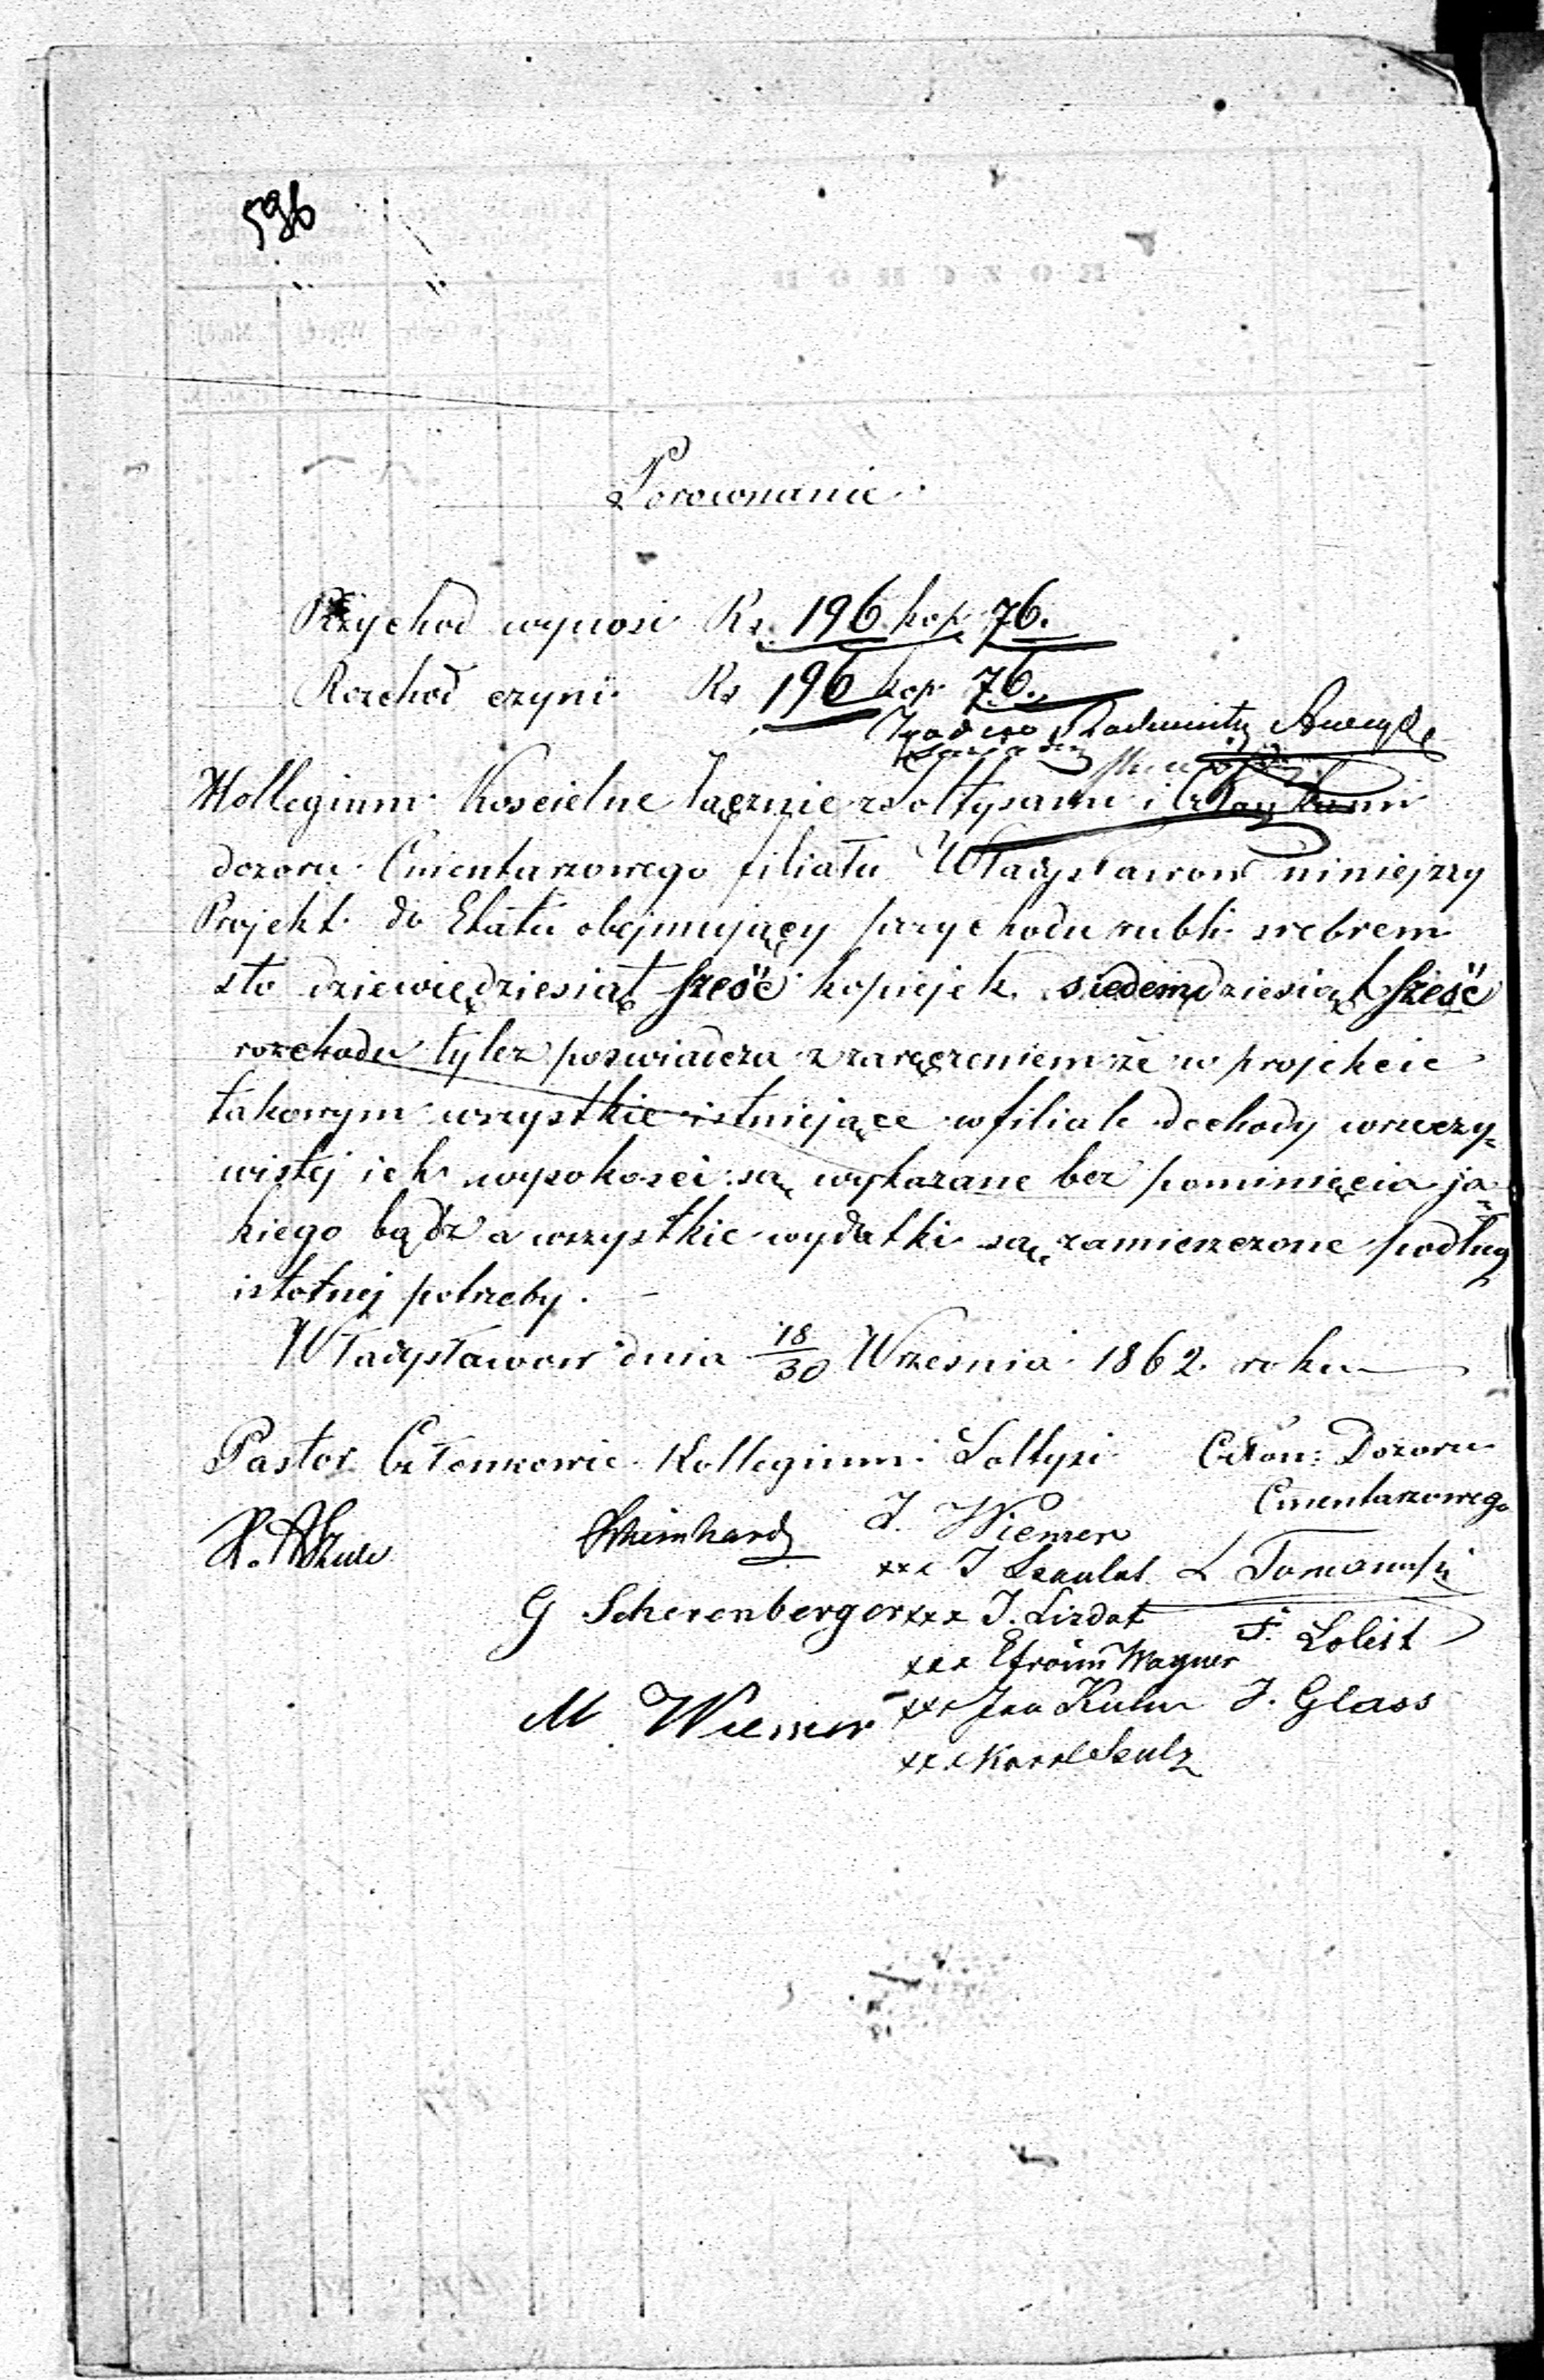 596
Porownanie
Przychod wynosi Rs. 196 kop 76.
Rozchod czyni Rs 196 kop 76.
Kollegium Koscielne łącznie z Sołtysami i Członkami
dozoru Cmentarzowego filiału Władysławow niniejszy
Projekt do Etatu obejmujący przychodu rubli srebrem
sto dziewięდziesiąt sześć kopiejek siedemdziesiąt sześć
rozchodu tylez poswiadcza z zaręczeniem że w projekcie
takowym wszystkie istniejące w filiale dochody w rzeczy=
wistej ich wysokosci są wykazane bez pominięcia ja=
kiego bądz a wszystkie wydatki są zamieszczone podług
istotnej potrzeby. —
Władysławow dnia 18/30 Wrzesnia 1862 roku
Pastor Członkowie Kollegium Soltysi Człon: Dozoru
Cmentarzowego
Rheinhard J. Wiemer
xxx J Szaulat L Tomanski
G Scherenberger xxx J. Lirdat
F. Lolist
xxx Efroim Wagner
M Wiemer xxx Jan Kuhn J. Glass
xxx Karol Szulz